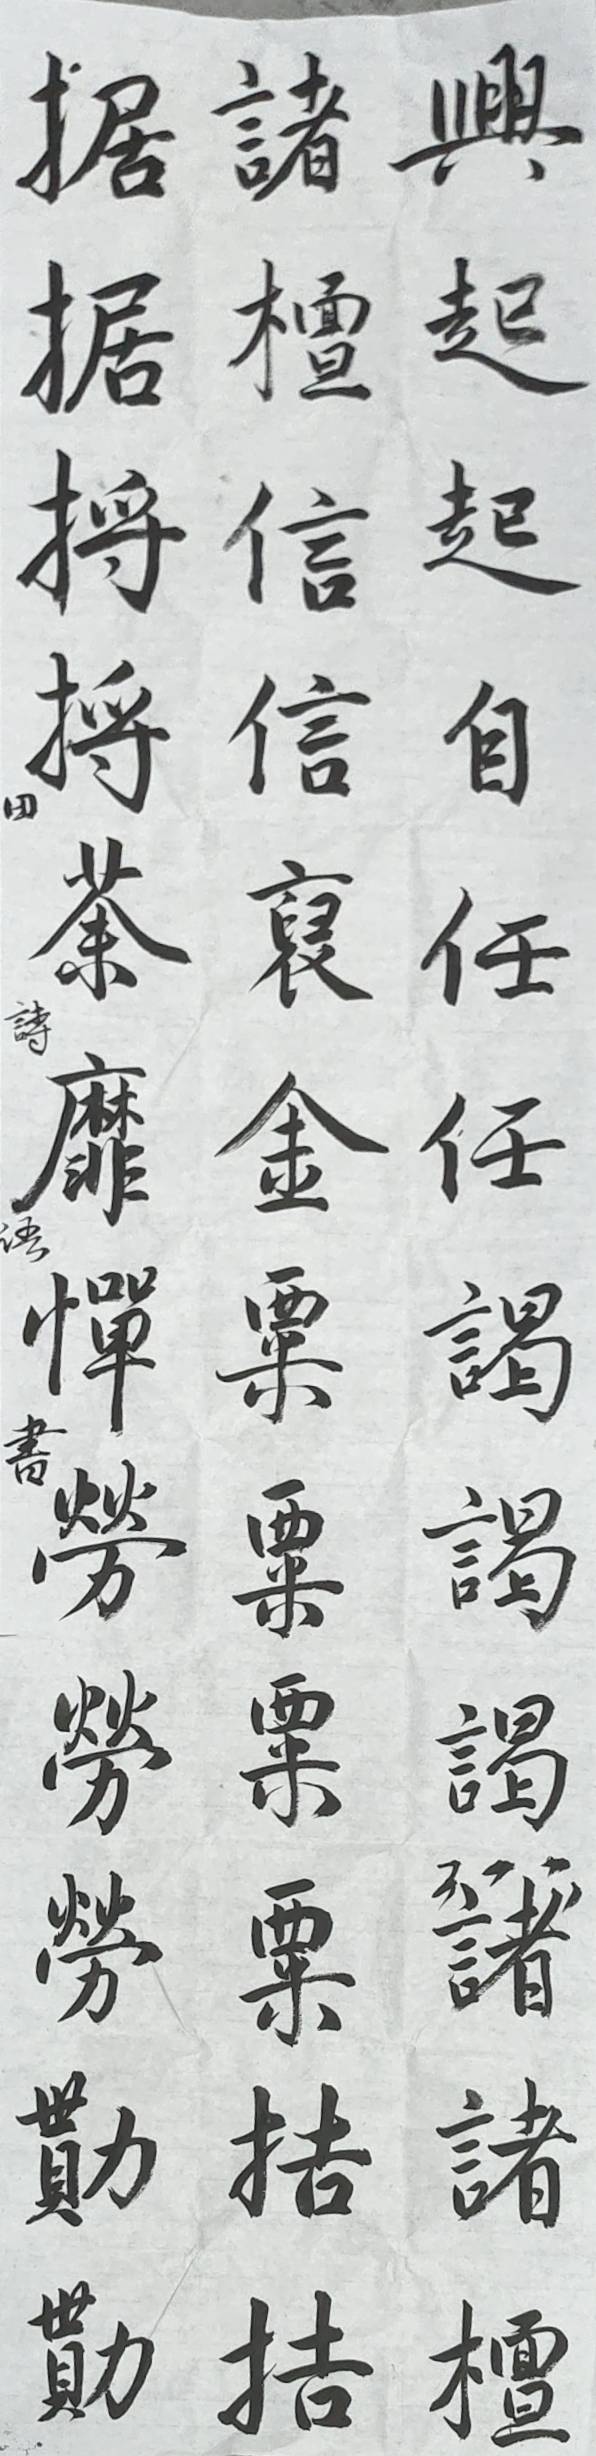 興起起自任任謁謁謁諸諸檀
諸檀信信裒金粟粟粟粟拮拮
据据捋捋荼靡憚勞勞勞勩勩
田詩語書